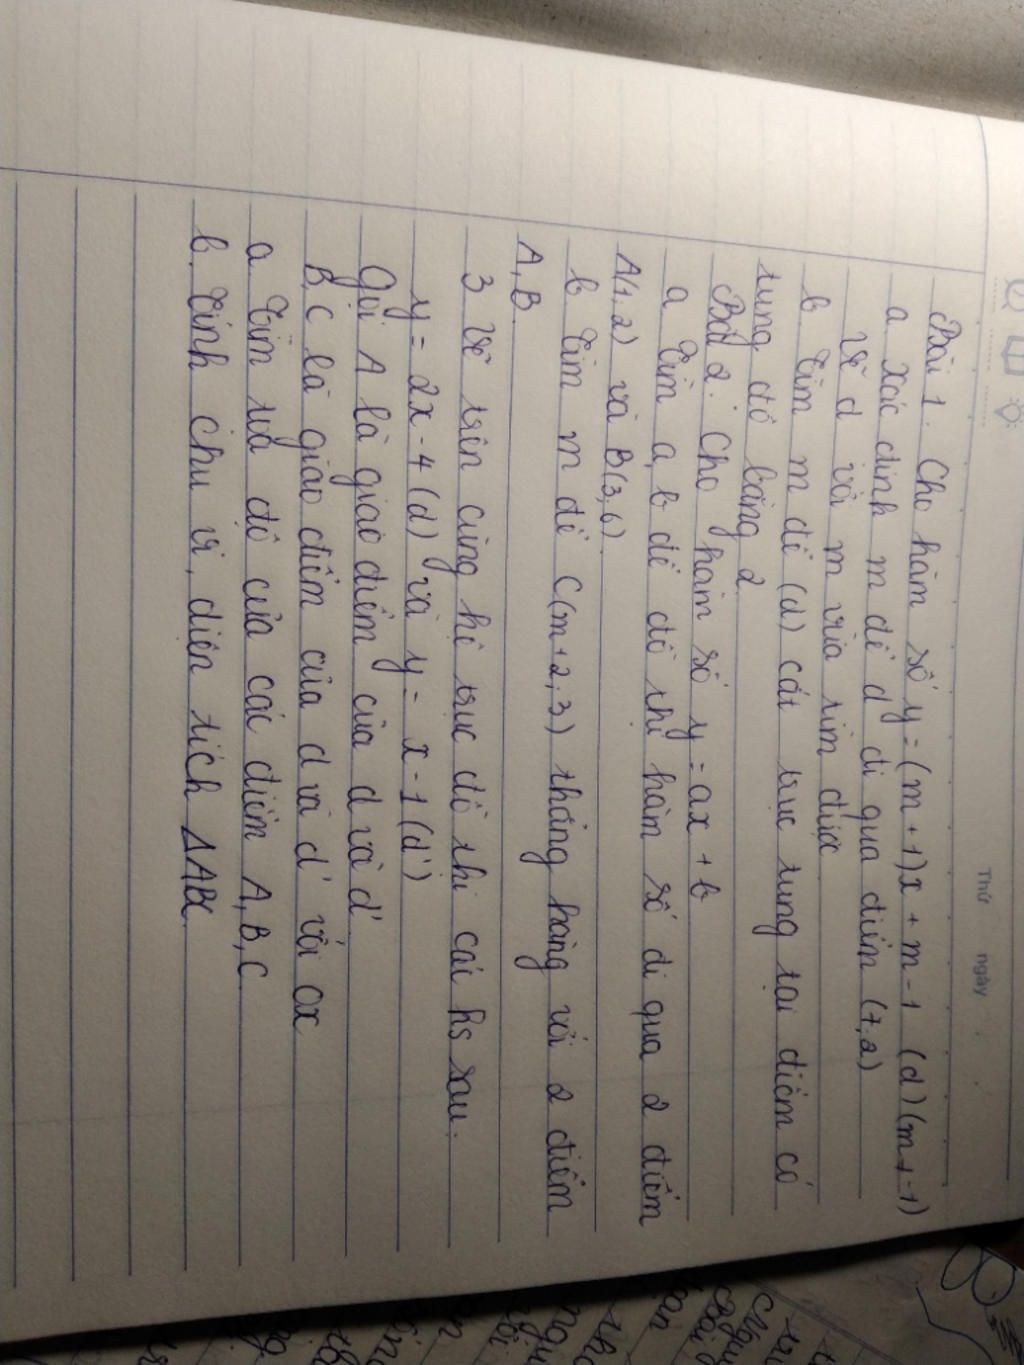 Thứ ngày
Bài 1. Cho hàm số y = (m + 1)x + m - 1 (d) (m ≠ -1)
a Xác định m để d đi qua điểm (7,2)
Vẽ d với m vừa tìm được
b Tìm m để (d) cắt trục tung tại điểm có
tung độ bằng 2.
Bài 2: Cho hàm số y = ax + b
a Tìm a, b để đồ thị hàm số đi qua 2 điểm
A(1, 2) và B(3, 6).
b Tìm m để C(m+2, 3) thẳng hàng với 2 điểm
A, B.
3 Vẽ trên cùng hệ trục đồ thị các hs sau.
y = 2x - 4 (d) và y = x - 1 (d')
Gọi A là giao điểm của d và d'
B, C là giao điểm của d và d' với ox
a Tìm toạ độ của các điểm A, B, C
b. Tính chu vi, diện tích ΔABC.